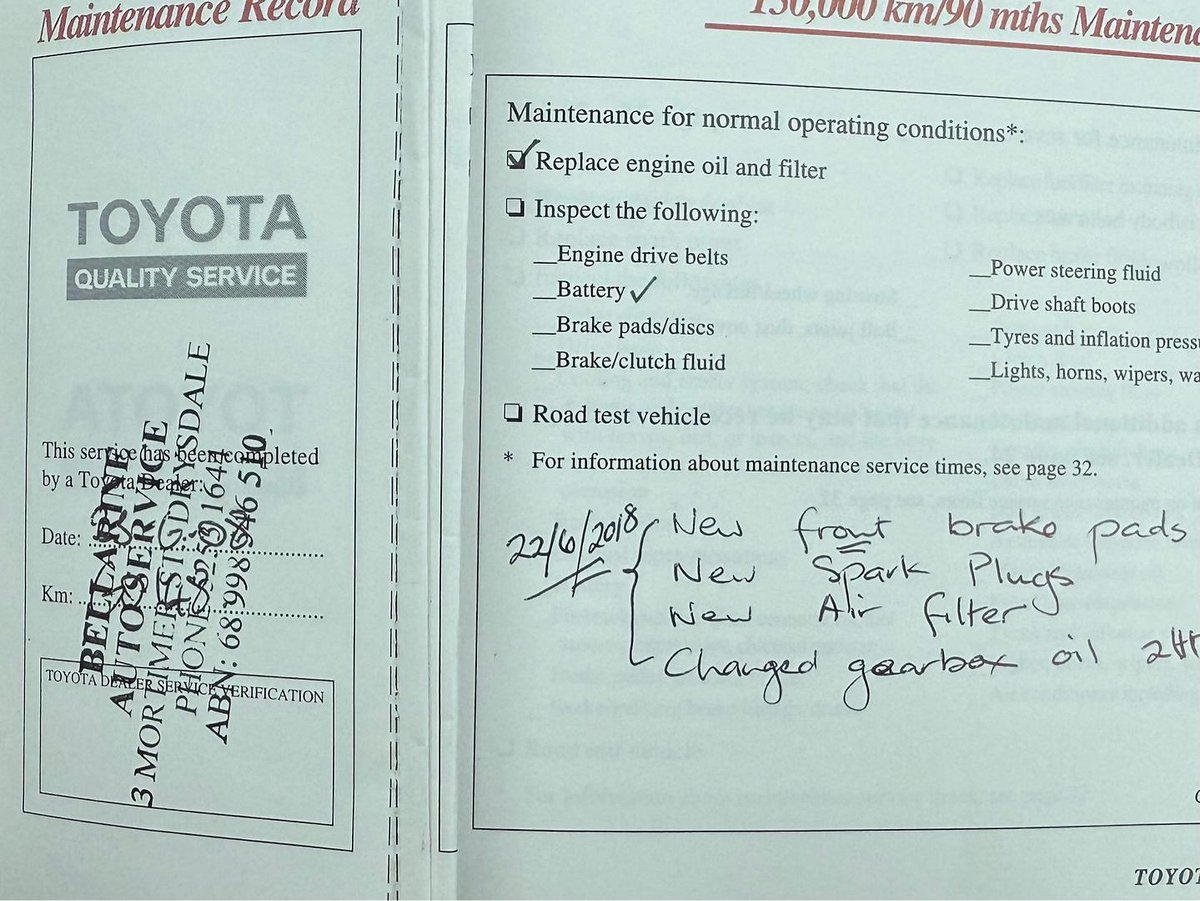 Maintenance Record
TOYOTA
QUALITY SERVICE
This service has been completed
by a Toyota Dealer:
Date:
Km:
BELLARINE
AUTO SERVICE
3 MORTIMER ST
DRYSDALE
PHONE
ABN: 68 998 946 510
TOYOTA DEALER SERVICE VERIFICATION
150,000 km/90 mths Maintenance
Maintenance for normal operating conditions*:
Replace engine oil and filter
Inspect the following:
Engine drive belts
Battery ✓
Brake pads/discs
Brake/clutch fluid
Power steering fluid
Drive shaft boots
Tyres and inflation pressu
Lights, horns, wipers, wa
Road test vehicle
* For information about maintenance service times, see page 32.
22/6/2018
New front brake pads
New Spark Plugs
New Air filter
Changed gearbox oil
TOYO